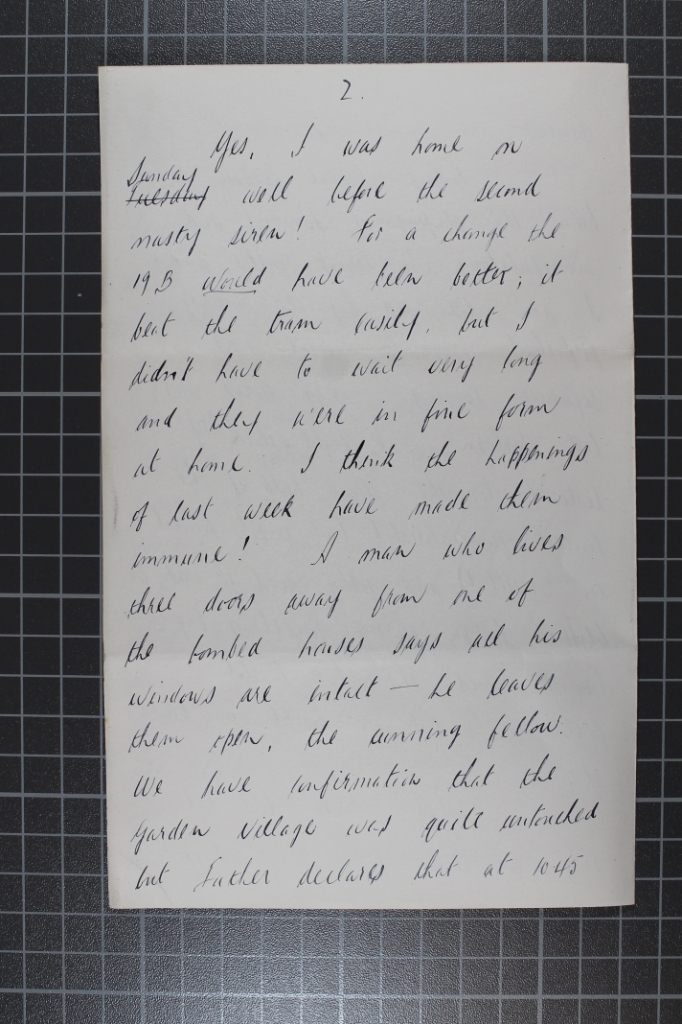 2.
Yes, I was home on
Sunday
Tuesday well before the second
nasty siren! For a change the
19 B would have been better; it
beat the tram easily, but I
didn't have to wait very long
and they were in fine form
at home. I think the happenings
of last week have made them
immune! A man who lives
three doors away from one of
the bombed houses says all his
windows are intact — he leaves
them open, the cunning fellow.
We have confirmation that the
Garden Village was quite untouched
but Father declares that at 10.45